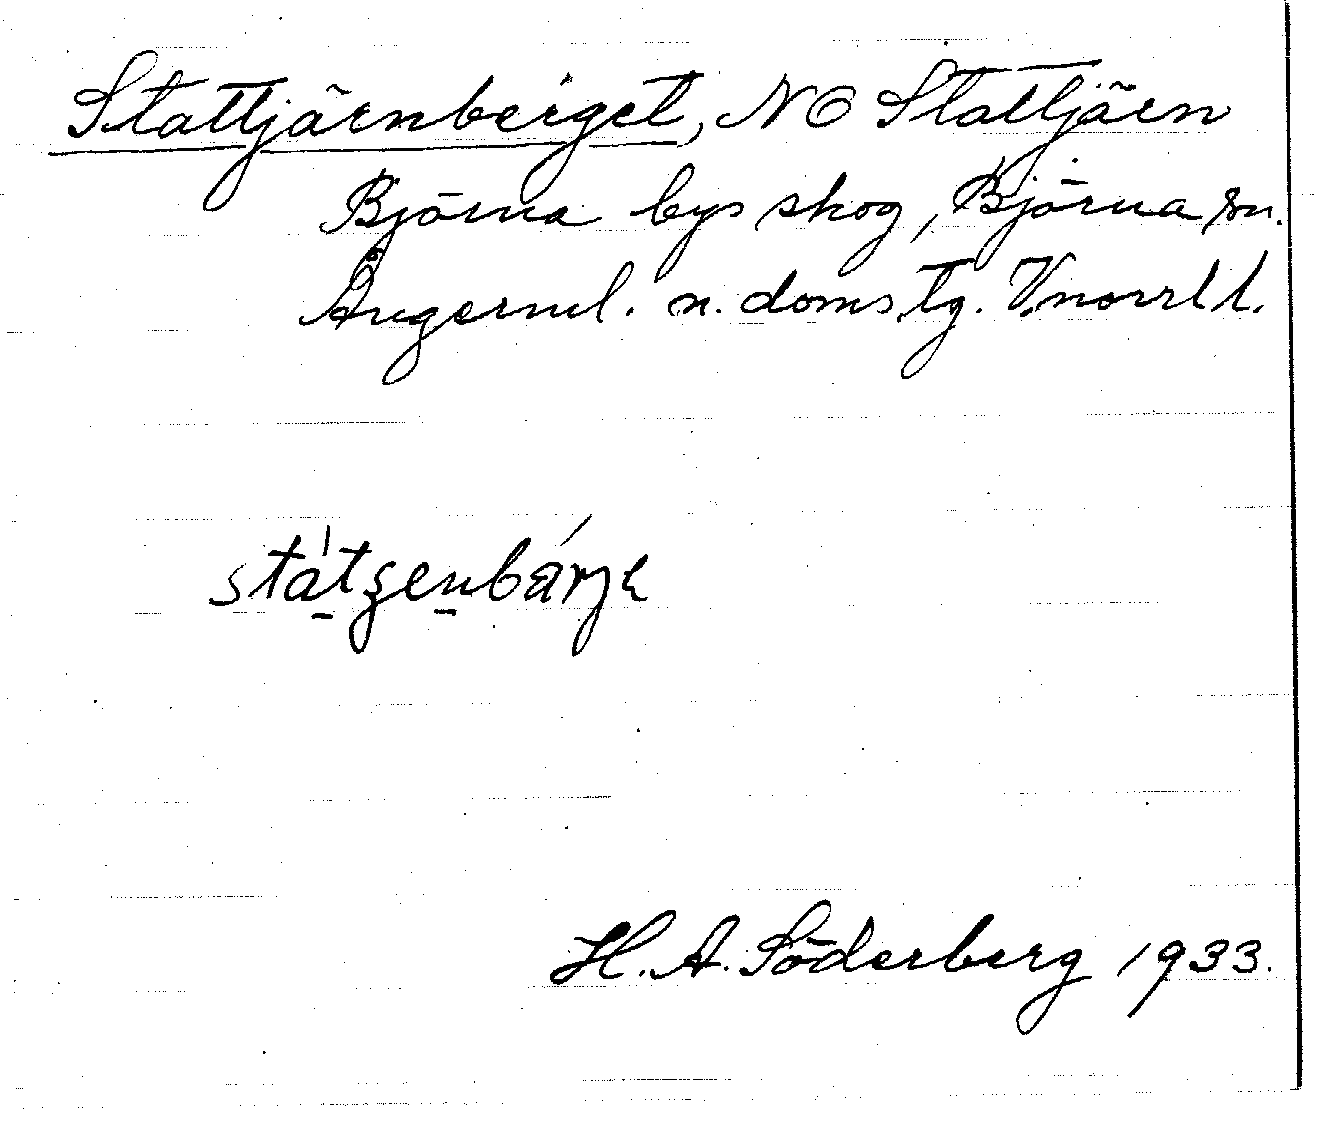 Stattjärnberget, NO Stattjärn
Björna bys skog, Björna sn.
Ångerml. n. doms.tg. V.norrl l.
státʂen̠bárjɛ
H. A. Söderberg 1933.